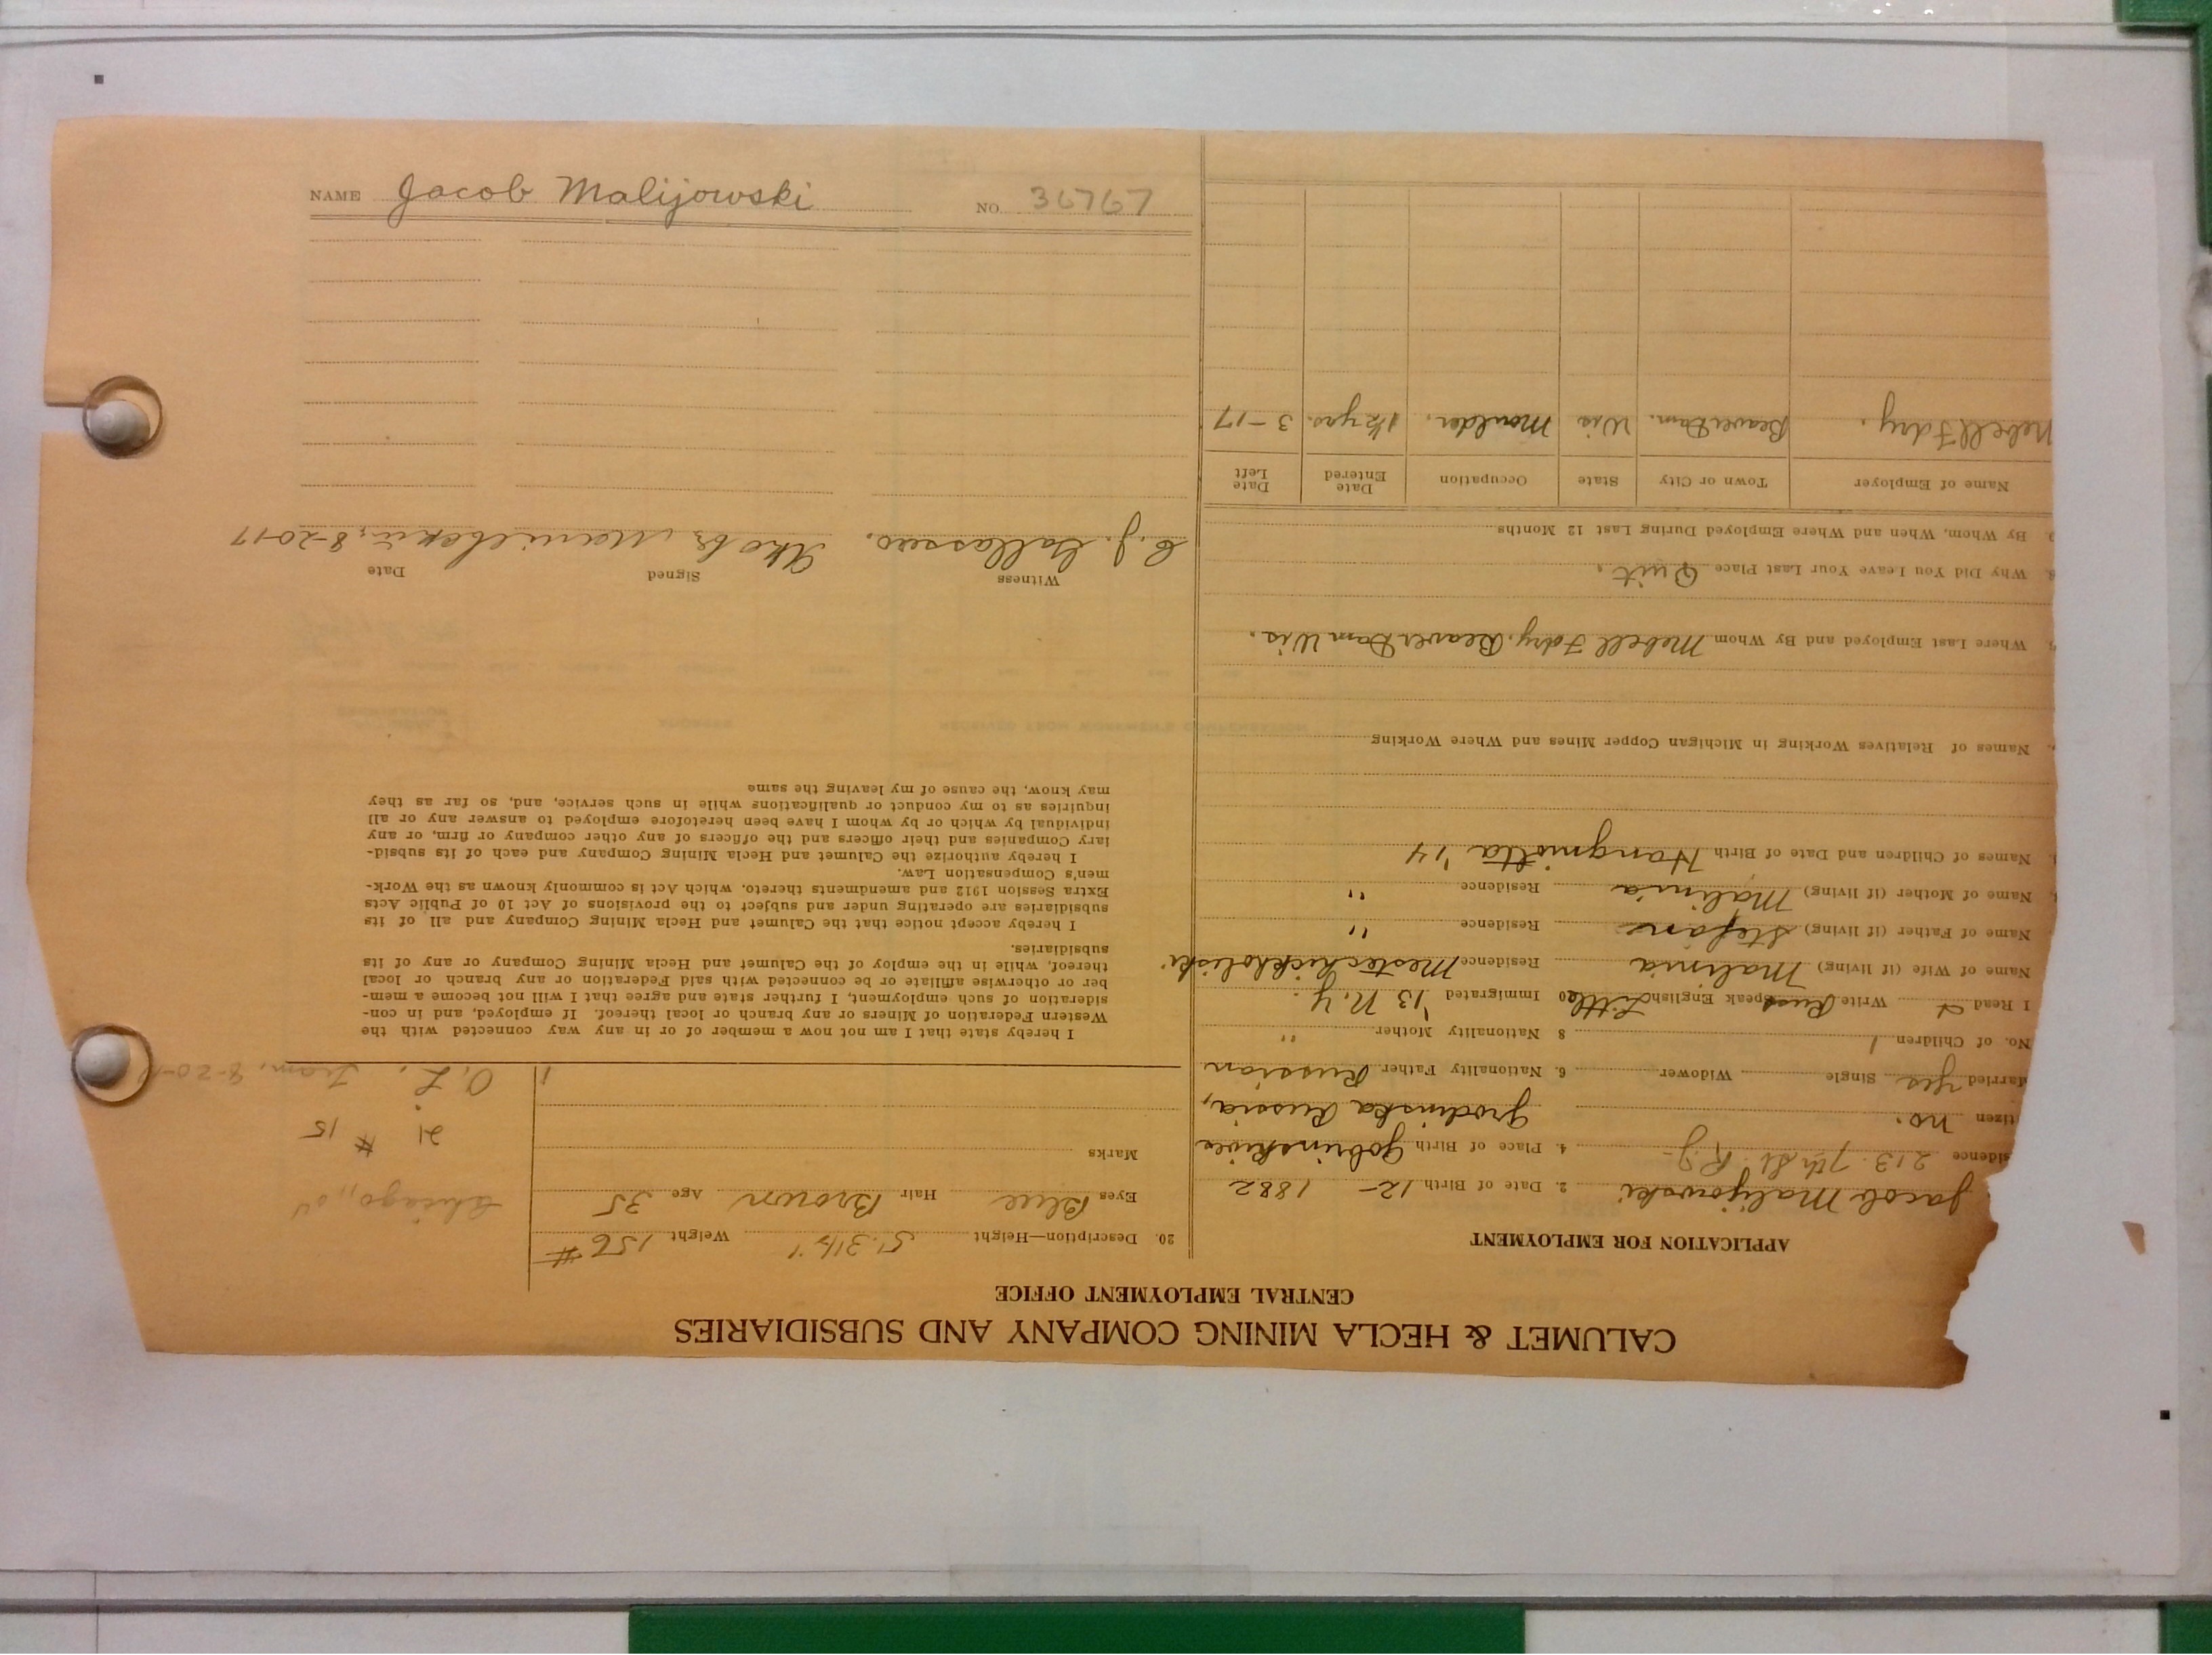 CALUMET & HECLA MINING COMPANY AND SUBSIDIARIES
CENTRAL EMPLOYMENT OFFICE
APPLICATION FOR EMPLOYMENT
Jacob Malijowski 2. Date of Birth 12- 1882
sidence 213. 7th St. R.J. 4. Place of Birth
itizen no. Grodinska Russia,
arried yes Single Widower 6. Nationality Father Russian
No. of Children 1 8 Nationality Mother "
I Read Write Russ Speak English Little 10 Immigrated '13 N.Y.
Name of Wife (if living) Malinia Residence
Name of Father (if living) Stefane Residence "
Name of Mother (if living) Malinia Residence "
Names of Children and Date of Birth '14
Names of Relatives Working in Michigan Copper Mines and Where Working
Where Last Employed and By Whom Mebell Fdry, Beaver Dam Wis.
8. Why Did You Leave Your Last Place Quit.
9. By Whom, When and Where Employed During Last 12 Months
Name of Employer Town or City State Occupation Date Entered Date Left
Mebell Fdry. Beaver Dam. Wis Moulder. 1½ yrs. 3-17
20. Description—Height 5'. 3½" Weight 156 #
Eyes Blue Hair Brown Age 35
Marks
Chicago,
21. # 15
O.L. Tram, 8-20-
I hereby state that I am not now a member of or in any way connected with the
Western Federation of Miners or any branch or local thereof. If employed, and in con-
sideration of such employment, I further state and agree that I will not become a mem-
ber or otherwise affiliate or be connected with said Federation or any branch or local
thereof, while in the employ of the Calumet and Hecla Mining Company or any of its
subsidiaries.
I hereby accept notice that the Calumet and Hecla Mining Company and all of its
subsidiaries are operating under and subject to the provisions of Act 10 of Public Acts
Extra Session 1912 and amendments thereto, which Act is commonly known as the Work-
men's Compensation Law.
I hereby authorize the Calumet and Hecla Mining Company and each of its subsid-
iary Companies and their officers and the officers of any other company or firm, or any
individual by which or by whom I have been heretofore employed to answer any or all
inquiries as to my conduct or qualifications while in such service, and, so far as they
may know, the cause of my leaving the same
Witness Signed Date
8-20-17
NAME Jacob Malijowski NO. 36767